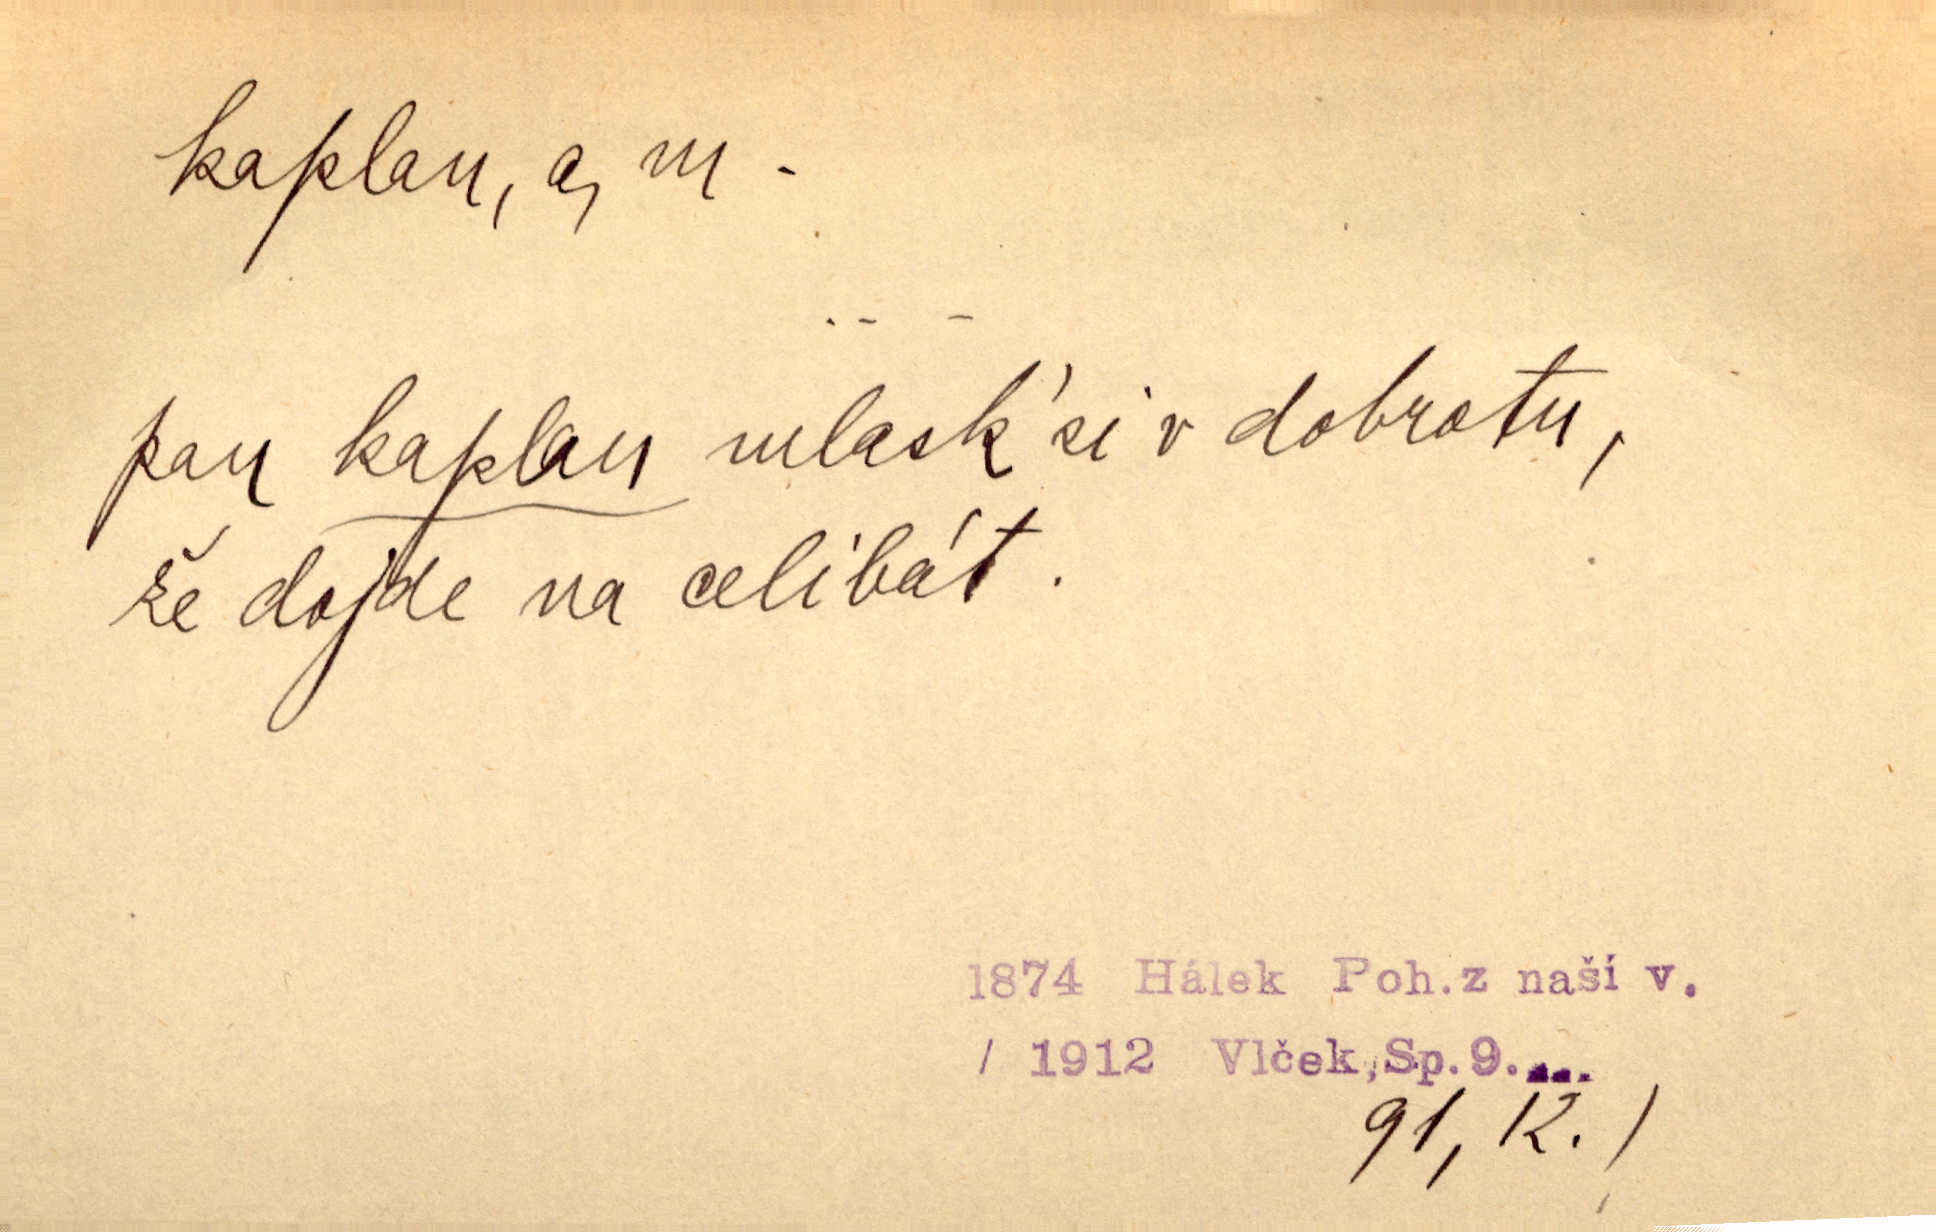 kaplan, a, m -
pan kaplan mlask' si v dobrotu,
že dojde na celibát.
1874 Hálek Poh. z naší v.
/ 1912 Vlček, Sp. 9....
91, 12. /